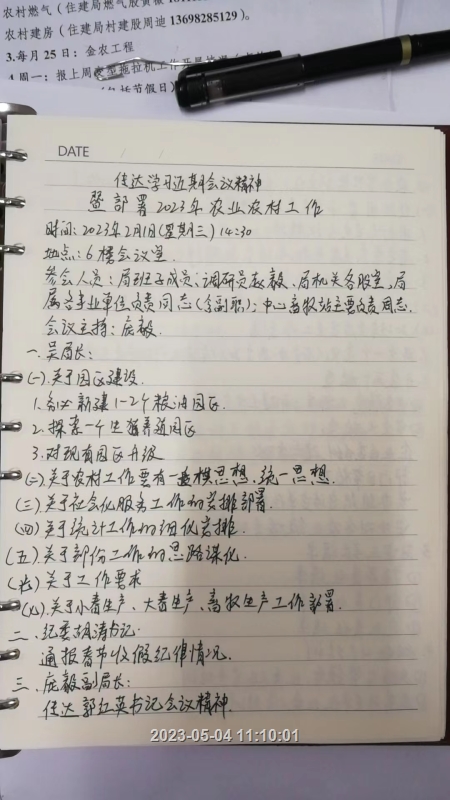 农村燃气（住建局燃气股黄薇
农村建房（住建局村建股周迪 13698285129）。
3.每月 25 日：金农工程
4.周一：报上周
（包括节假日）
DATE / /
传达学习近期会议精神
暨部署2023年农业农村工作
时间：2023年2月1日(星期三) 14:30
地点：6楼会议室.
参会人员：局班子成员、调研员赵毅、局机关各股室、局
属各事业单位负责同志(含副职)；中心畜牧站主要负责同志.
会议主持：庞毅.
一.吴局长：
(一).关于园区建设.
1.务必新建1-2个粮油园区.
2.探索一个生猪养殖园区
3.对现有园区升级
(二)关于农村工作要有一盘棋思想、统一思想.
(三)关于社会化服务工作的安排部署.
(四)关于统计工作的细化安排.
(五)关于部份工作的思路谋化.
(六)关于工作要求
(七).关于小春生产、大春生产、畜牧生产工作部署.
二、纪委胡涛书记：
通报春节收假纪律情况.
三.庞毅副局长：
传达郭红英书记会议精神.
2023-05-04 11:10:01